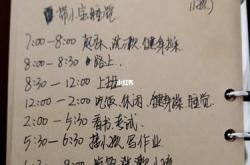 带小宝睡觉
7:00-8:00 起床、洗漱、健身操
8:00-8:30 路上.
8:30-12:00 上班
12:00-2:00 吃饭、休闲、健身操、睡觉
2:00-5:30 看书、考试
5:30-6:30 接小孩、写作业
小红书